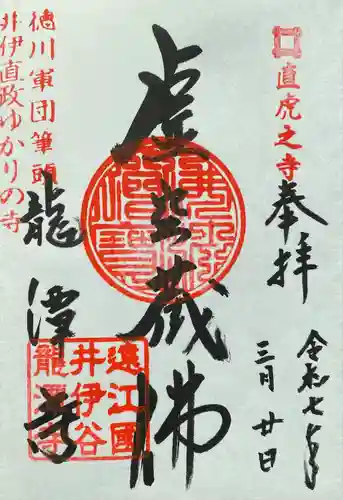 直虎之寺
奉拝
令和七年
三月廿日
虚空蔵佛
龍潭寺
遠江國
井伊谷
龍潭寺
徳川軍団筆頭
井伊直政ゆかりの寺